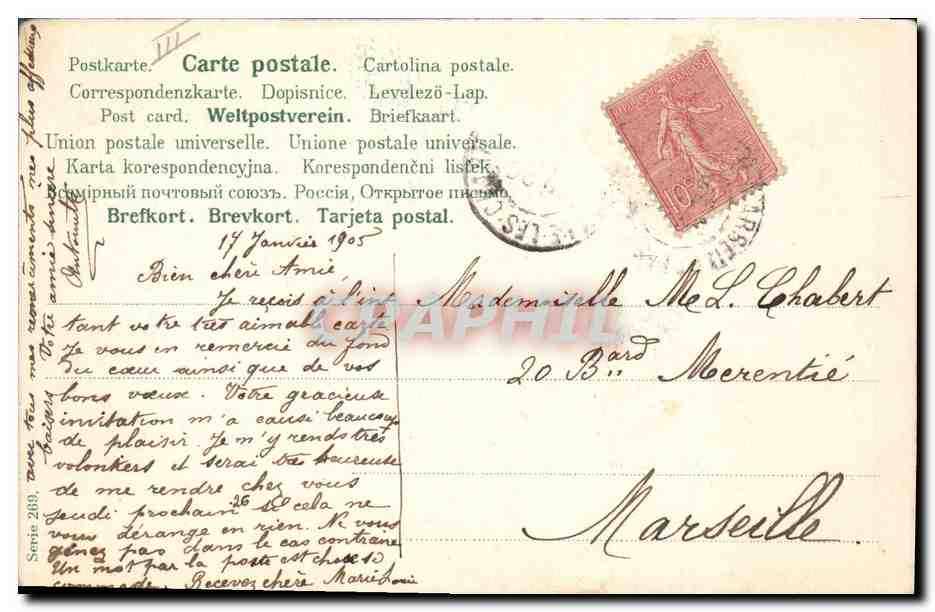 III
Postkarte. Carte postale. Cartolina postale.
Correspondenzkarte. Dopisnice. Levelezö-Lap.
Post card. Weltpostverein. Briefkaart.
Union postale universelle. Unione postale universale.
Karta korespondencyjna. Korespondenčni listek.
Всемірный почтовый союзъ. Россія, Открытое письмо.
Brefkort. Brevkort. Tarjeta postal.
17 Janvier 1905
Bien chère Amie,
Je reçois à l'ins
tant votre très aimable carte
Je vous en remercie du fond
du cœur ainsi que de vos
bons vœux. Votre gracieuse
invitation m'a causé beaucoup
de plaisir. Je m'y rends très
volontiers et serai très heureuse
de me rendre chez vous
jeudi prochain 26 si cela ne
vous dérange en rien. Ne vous
gênez pas dans le cas contraire
Un mot par la poste est chose si
commode. Recevez chère Marie Louise
avec tous mes remerciements mes plus affectueux
baisers Votre amie sincère
Antoinette
Serie 269.
Mademoiselle M. L. Chabert
20 Bard Merentié
Marseille.
10
CPAPHIL